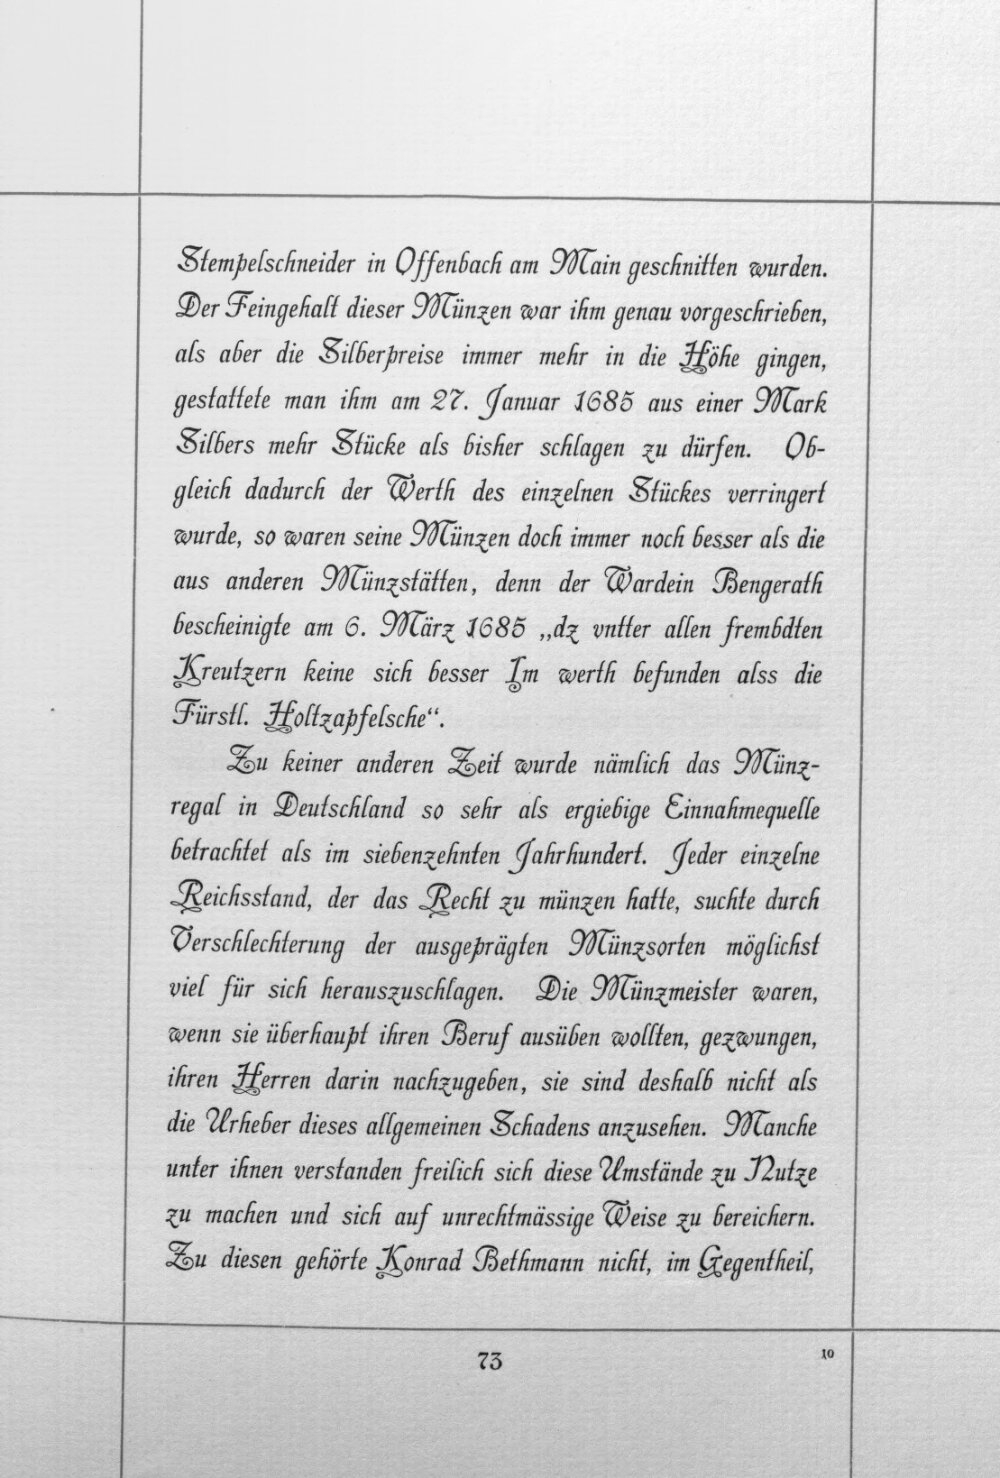 Stempelschneider in Offenbach am Main geschnitten wurden.
Der Feingehalt dieser Münzen war ihm genau vorgeschrieben,
als aber die Silberpreise immer mehr in die Höhe gingen,
gestattete man ihm am 27. Januar 1685 aus einer Mark
Silbers mehr Stücke als bisher schlagen zu dürfen. Ob-
gleich dadurch der Werth des einzelnen Stückes verringert
wurde, so waren seine Münzen doch immer noch besser als die
aus anderen Münzstätten, denn der Wardein Bengerath
bescheinigte am 6. März 1685 „dz vntter allen frembdten
Kreutzern keine sich besser Im werth befunden alss die
Fürstl. Holtzapfelsche“.
Zu keiner anderen Zeit wurde nämlich das Münz-
regal in Deutschland so sehr als ergiebige Einnahmequelle
betrachtet als im siebenzehnten Jahrhundert. Jeder einzelne
Reichsstand, der das Recht zu münzen hatte, suchte durch
Verschlechterung der ausgeprägten Münzsorten möglichst
viel für sich herauszuschlagen. Die Münzmeister waren,
wenn sie überhaupt ihren Beruf ausüben wollten, gezwungen,
ihren Herren darin nachzugeben, sie sind deshalb nicht als
die Urheber dieses allgemeinen Schadens anzusehen. Manche
unter ihnen verstanden freilich sich diese Umstände zu Nutze
zu machen und sich auf unrechtmässige Weise zu bereichern.
Zu diesen gehörte Konrad Bethmann nicht, im Gegentheil,
73
10